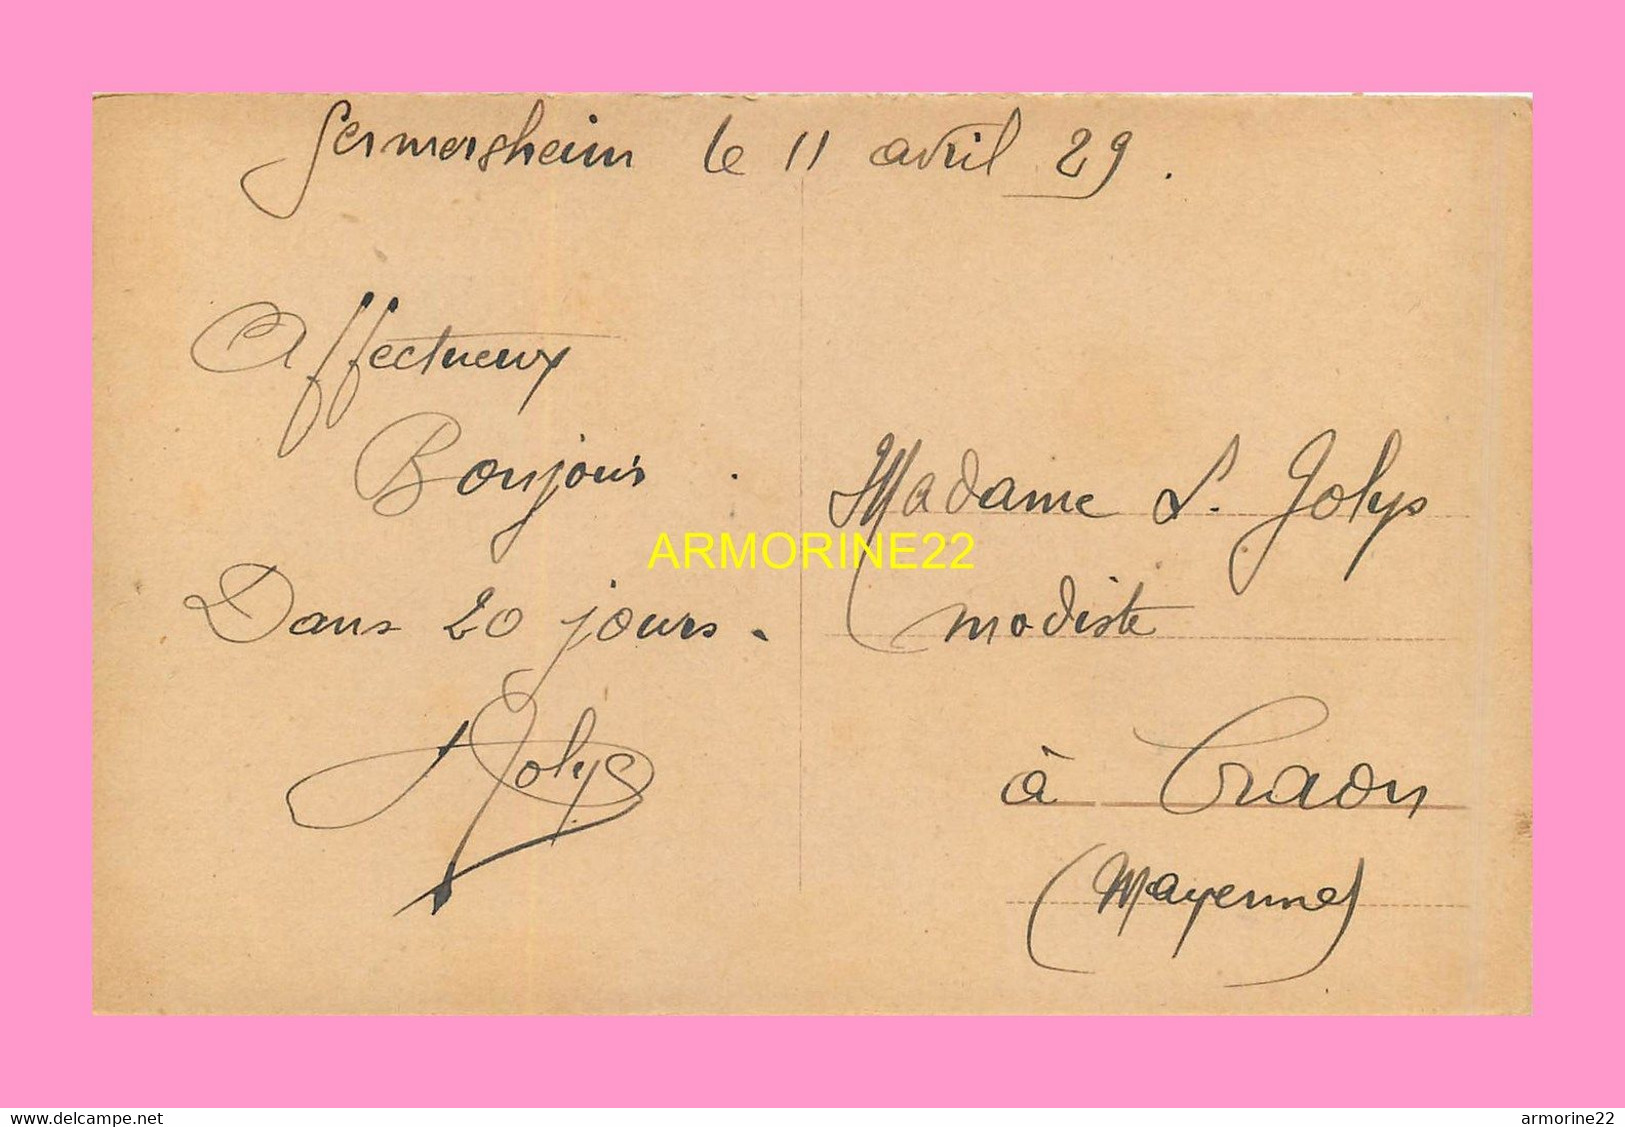 Germersheim le 11 avril 29.
Affectueux
Bonjour.
Dans 20 jours.
Jolys
Madame L. Jolys
modiste
à Craon
(Mayenne)
ARMORINE22
www.delcampe.net
armorine22